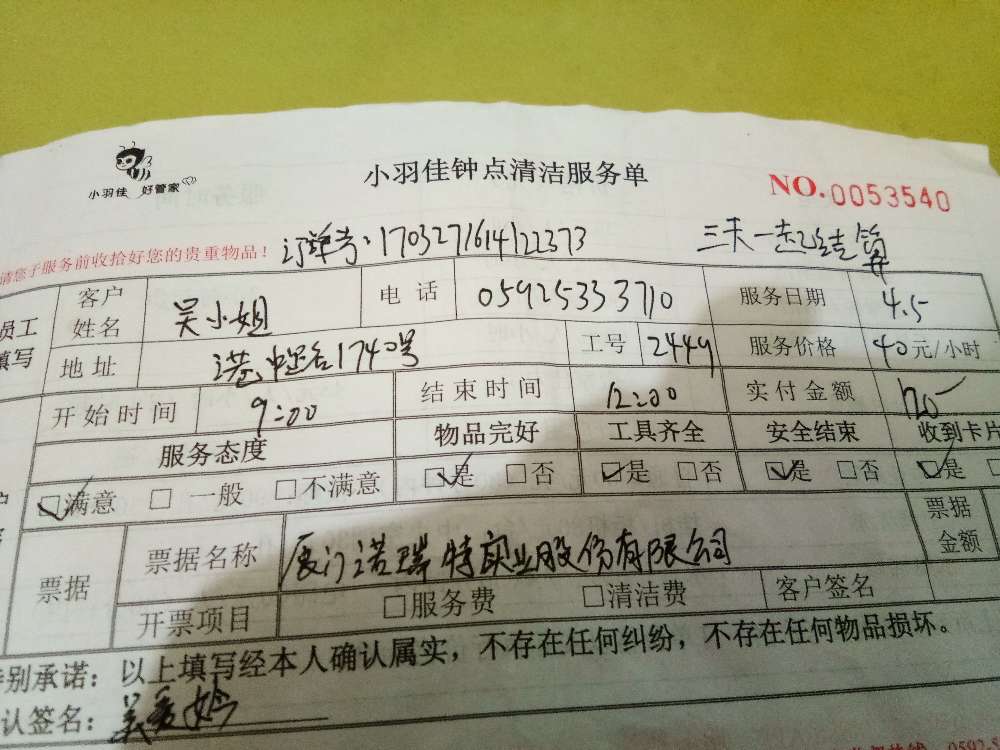 小羽佳 好管家
小羽佳钟点清洁服务单
NO.0053540
请您于服务前收拾好您的贵重物品！
订单号：1703271614122373
三末一起结算
员工填写
客户姓名 吴小姐 电话 05925333710 服务日期 4.5
地址 港中路1740号 工号 2449 服务价格 40元/小时
开始时间 9:00 结束时间 12:00 实付金额 120
服务态度 物品完好 工具齐全 安全结束 收到卡片
☑满意 □一般 □不满意 ☑是 □否 ☑是 □否 ☑是 □否 ☑是
票据 票据名称 厦门诺瑞特实业股份有限公司 票据金额
开票项目 □服务费 □清洁费 客户签名
特别承诺：以上填写经本人确认属实，不存在任何纠纷，不存在任何物品损坏。
认签名：